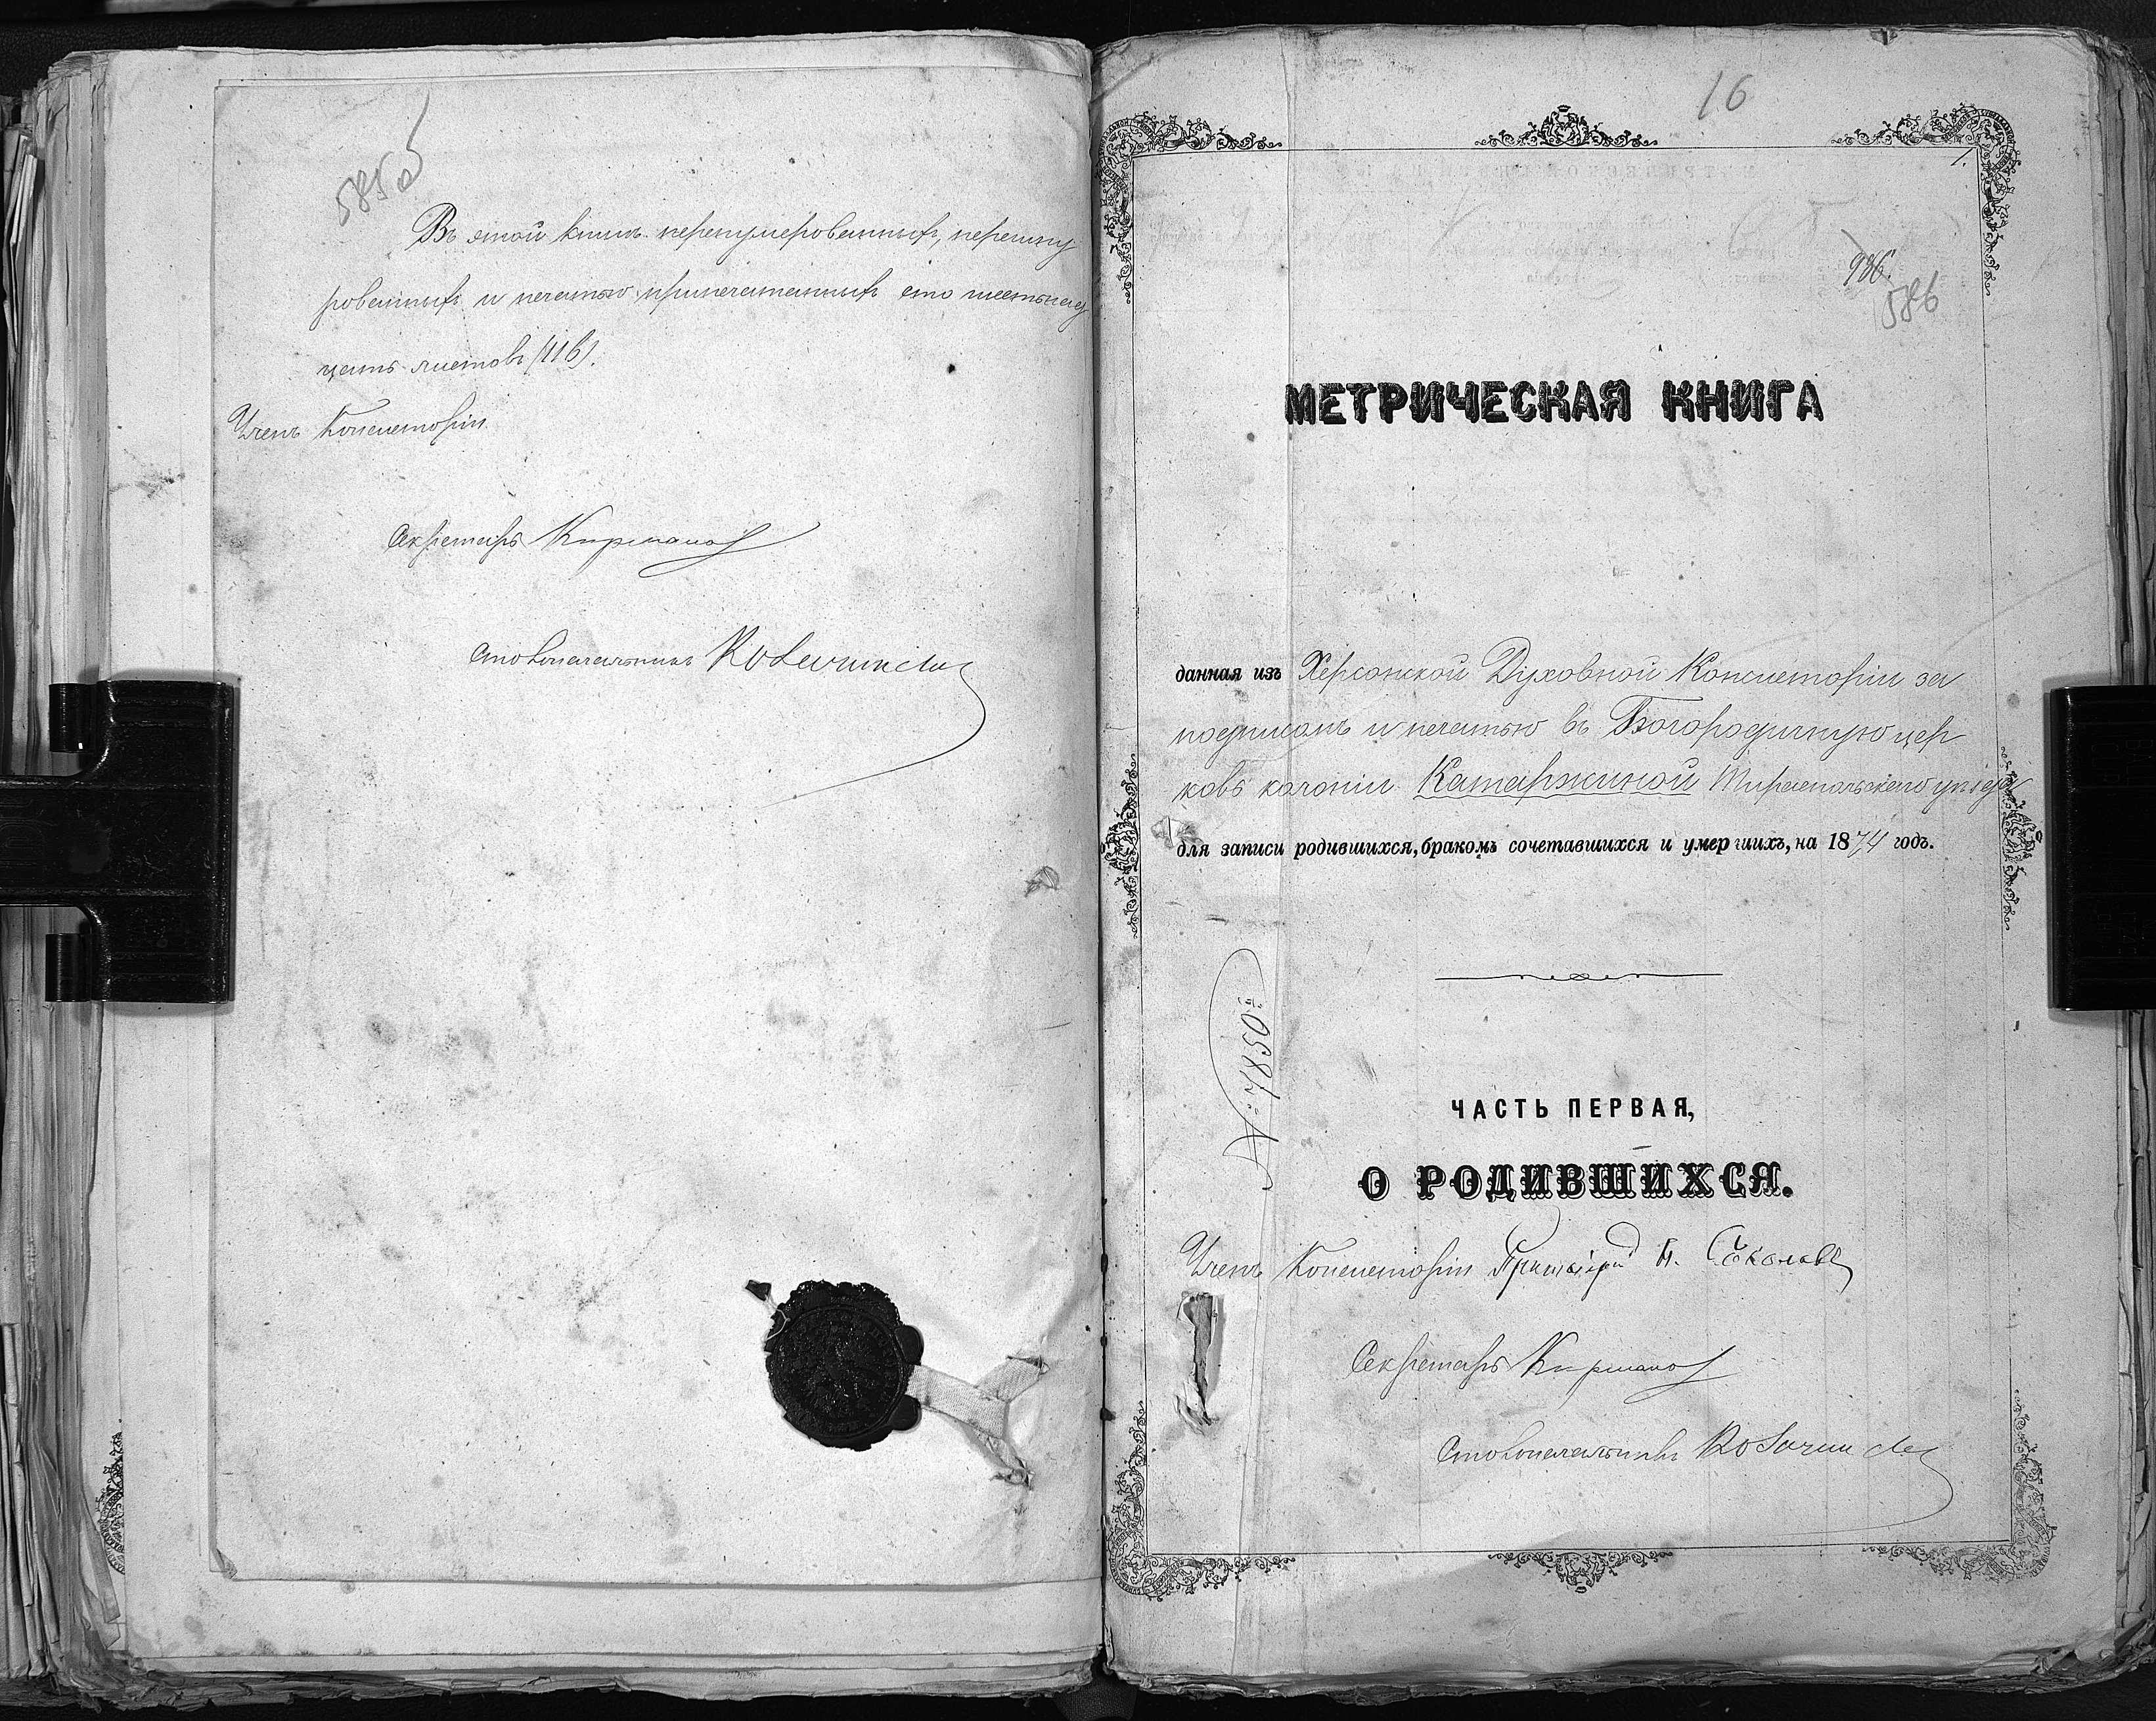 585об
Въ этой книгѣ перенумерованныхъ, перешну
рованныхъ и печатью припечатанныхъ сто шестьнад
цать листовъ (116).
Членъ Консисторіи
Секретарь
Столоначальникъ
16
1.
986.
586
МЕТРИЧЕСКАЯ КНИГА
данная изъ Херсонской Духовной Консисторіи за
подписомъ и печатью въ Богородичную цер
ковь колоніи Катаржиной Тираспольскаго уѣзда
для записи родившихся, бракомъ сочетавшихся и умершихъ, на 1874 годъ.
ЧАСТЬ ПЕРВАЯ,
О РОДИВШИХСЯ.
Членъ Консисторіи Протоіерей П. Соколовъ
Секретарь
Столоначальникъ